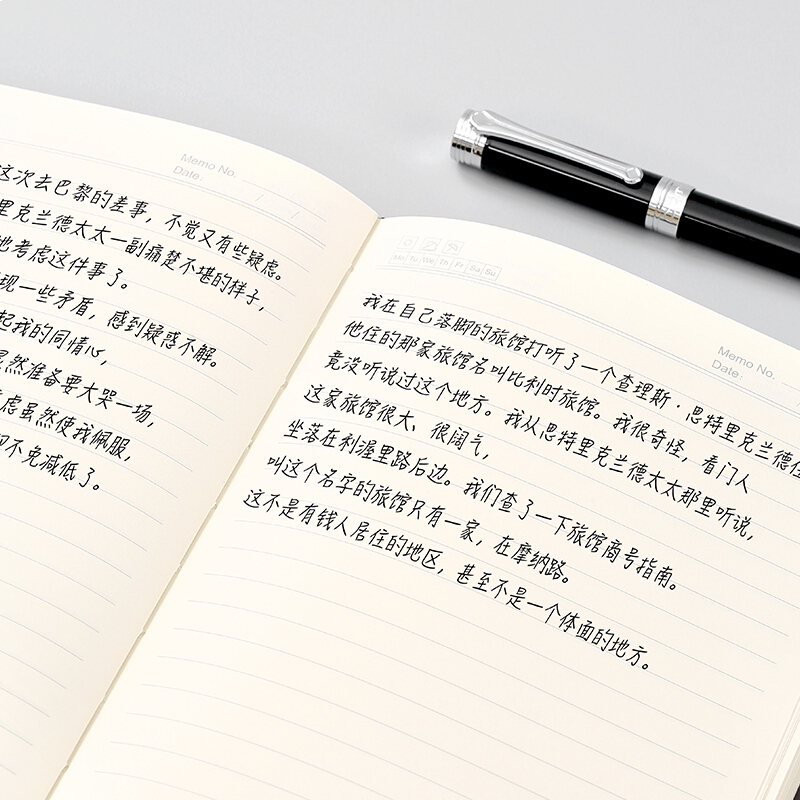 Memo No.
Date.
这次去巴黎的差事，不觉又有些疑虑。
里克兰德太太一副痛楚不堪的样子，
地考虑这件事了。
现一些矛盾，感到疑惑不解。
起我的同情心，
虽然准备要大哭一场，
虑虽然使我佩服，
却不免减低了。
Memo No.
Date.
Mo Tu We Th Fr Sa Su
我在自己落脚的旅馆打听了一个查理斯·思特里克兰德住
他住的那家旅馆名叫比利时旅馆。我很奇怪，看门人
竟没听说过这个地方。我从思特里克兰德太太那里听说，
这家旅馆很大，很阔气，
坐落在利渥里路后边。我们查了一下旅馆商号指南。
叫这个名字的旅馆只有一家，在摩纳路。
这不是有钱人居住的地区，甚至不是一个体面的地方。